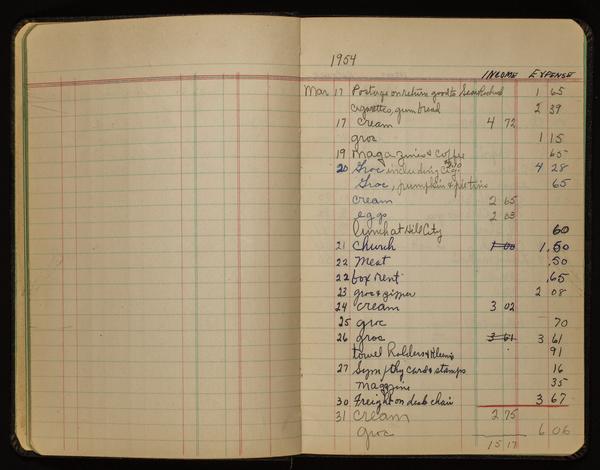 1954
INCOME EXPENSE
Mar 17 Postage on return goods to Sears 1 65
cigarettes, gum bread 2 39
17 cream 4 72
groc 1 15
19 magazines & coffee 65
20 Groc including cigs 4 28
Groc, pumpkin & 65
cream 2 65
eggs 2 03
lunch at Hill City 60
21 Church 1 00 1,50
22 Meat .50
22 box rent .65
23 groc & zipper 2 08
24 cream 3 02
25 groc 70
26 groc 3 61 3 61
towel holders & 91
27 Sympthy card & stamps 16
Magzzine 35
30 Freight on desk chair 3 67
31 Cream 2 75
groc 6 06
15 17